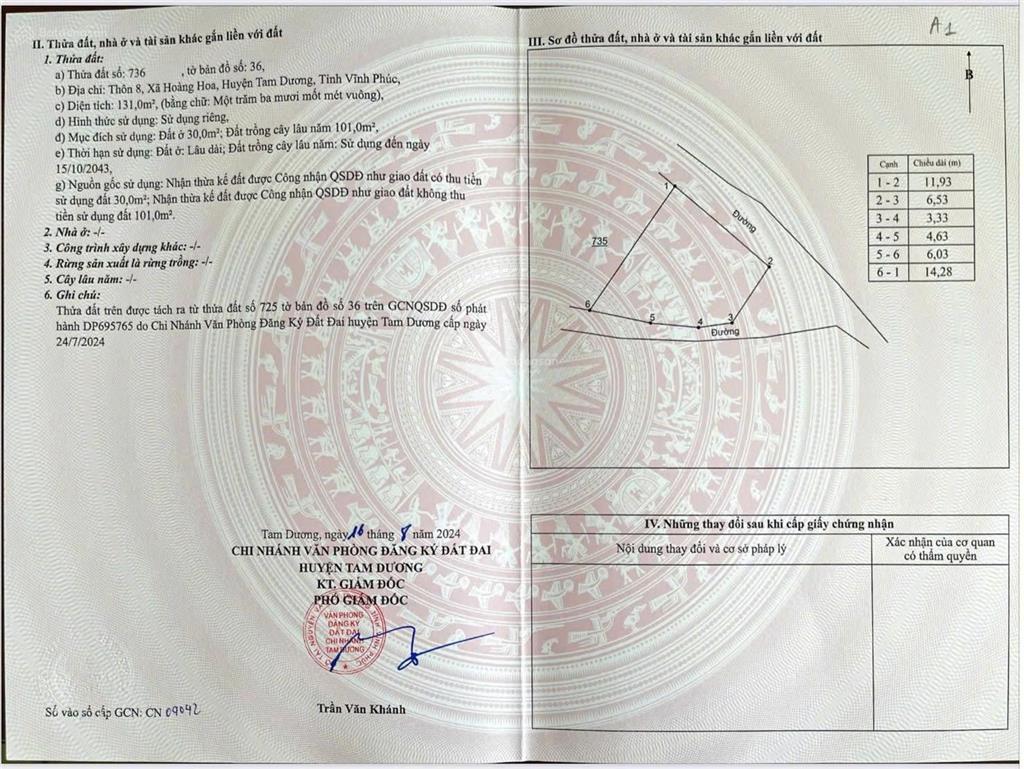 II. Thửa đất, nhà ở và tài sản khác gắn liền với đất
1. Thửa đất:
a) Thửa đất số: 736 , tờ bản đồ số: 36,
b) Địa chỉ: Thôn 8, Xã Hoàng Hoa, Huyện Tam Dương, Tỉnh Vĩnh Phúc,
c) Diện tích: 131,0m², (bằng chữ: Một trăm ba mươi mốt mét vuông),
d) Hình thức sử dụng: Sử dụng riêng,
đ) Mục đích sử dụng: Đất ở 30,0m²; Đất trồng cây lâu năm 101,0m²,
e) Thời hạn sử dụng: Đất ở: Lâu dài; Đất trồng cây lâu năm: Sử dụng đến ngày
15/10/2043,
g) Nguồn gốc sử dụng: Nhận thừa kế đất được Công nhận QSDĐ như giao đất có thu tiền
sử dụng đất 30,0m²; Nhận thừa kế đất được Công nhận QSDĐ như giao đất không thu
tiền sử dụng đất 101,0m².
2. Nhà ở: -/-
3. Công trình xây dựng khác: -/-
4. Rừng sản xuất là rừng trồng: -/-
5. Cây lâu năm: -/-
6. Ghi chú:
Thửa đất trên được tách ra từ thửa đất số 725 tờ bản đồ số 36 trên GCNQSDĐ số phát
hành DP695765 do Chi Nhánh Văn Phòng Đăng Ký Đất Đai huyện Tam Dương cấp ngày
24/7/2024
Tam Dương, ngày 16 tháng 8 năm 2024
CHI NHÁNH VĂN PHÒNG ĐĂNG KÝ ĐẤT ĐAI
HUYỆN TAM DƯƠNG
KT. GIÁM ĐỐC
PHÓ GIÁM ĐỐC
VĂN PHÒNG
ĐĂNG KÝ
ĐẤT ĐAI
CHI NHÁNH
TAM DƯƠNG
Trần Văn Khánh
Số vào sổ cấp GCN: CN 09042
A1
III. Sơ đồ thửa đất, nhà ở và tài sản khác gắn liền với đất
B
Cạnh Chiều dài (m)
1 - 2 11,93
2 - 3 6,53
3 - 4 3,33
4 - 5 4,63
5 - 6 6,03
6 - 1 14,28
1
Đường
735
2
6
5
4
3
Đường
IV. Những thay đổi sau khi cấp giấy chứng nhận
Nội dung thay đổi và cơ sở pháp lý
Xác nhận của cơ quan
có thẩm quyền